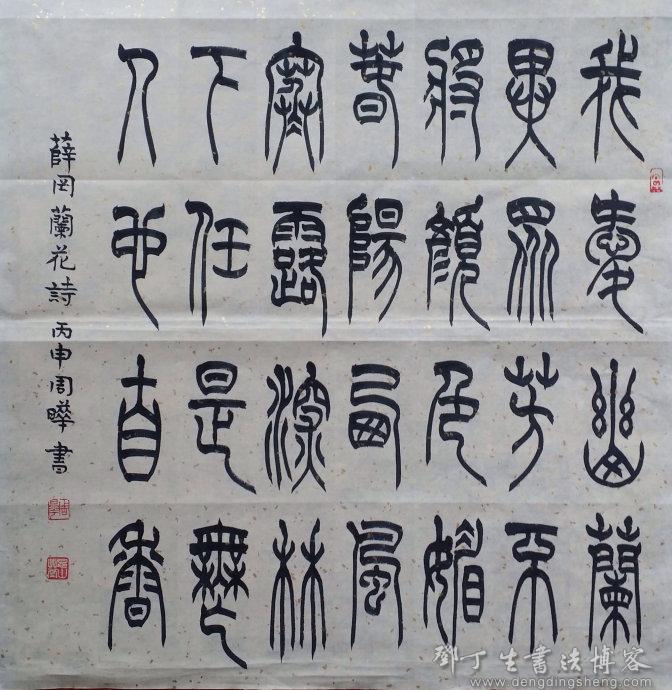 我愛幽蘭
異眾芳不
將顏色媚
春陽西風
寒露深林
下任是無
人也自香
薛岡蘭花詩 丙申周曄書
鄧丁生書法博客
www.dengdingsheng.com